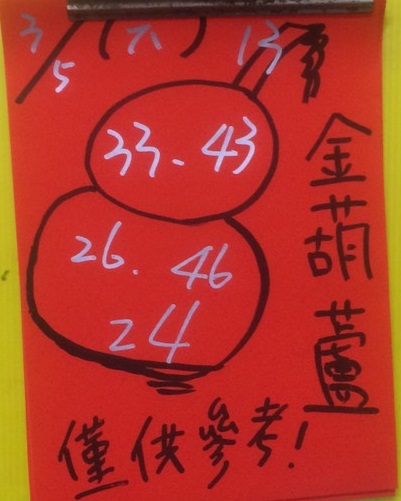 3/5 (六) 13
33-43
26.46
24
金葫蘆
僅供參考!